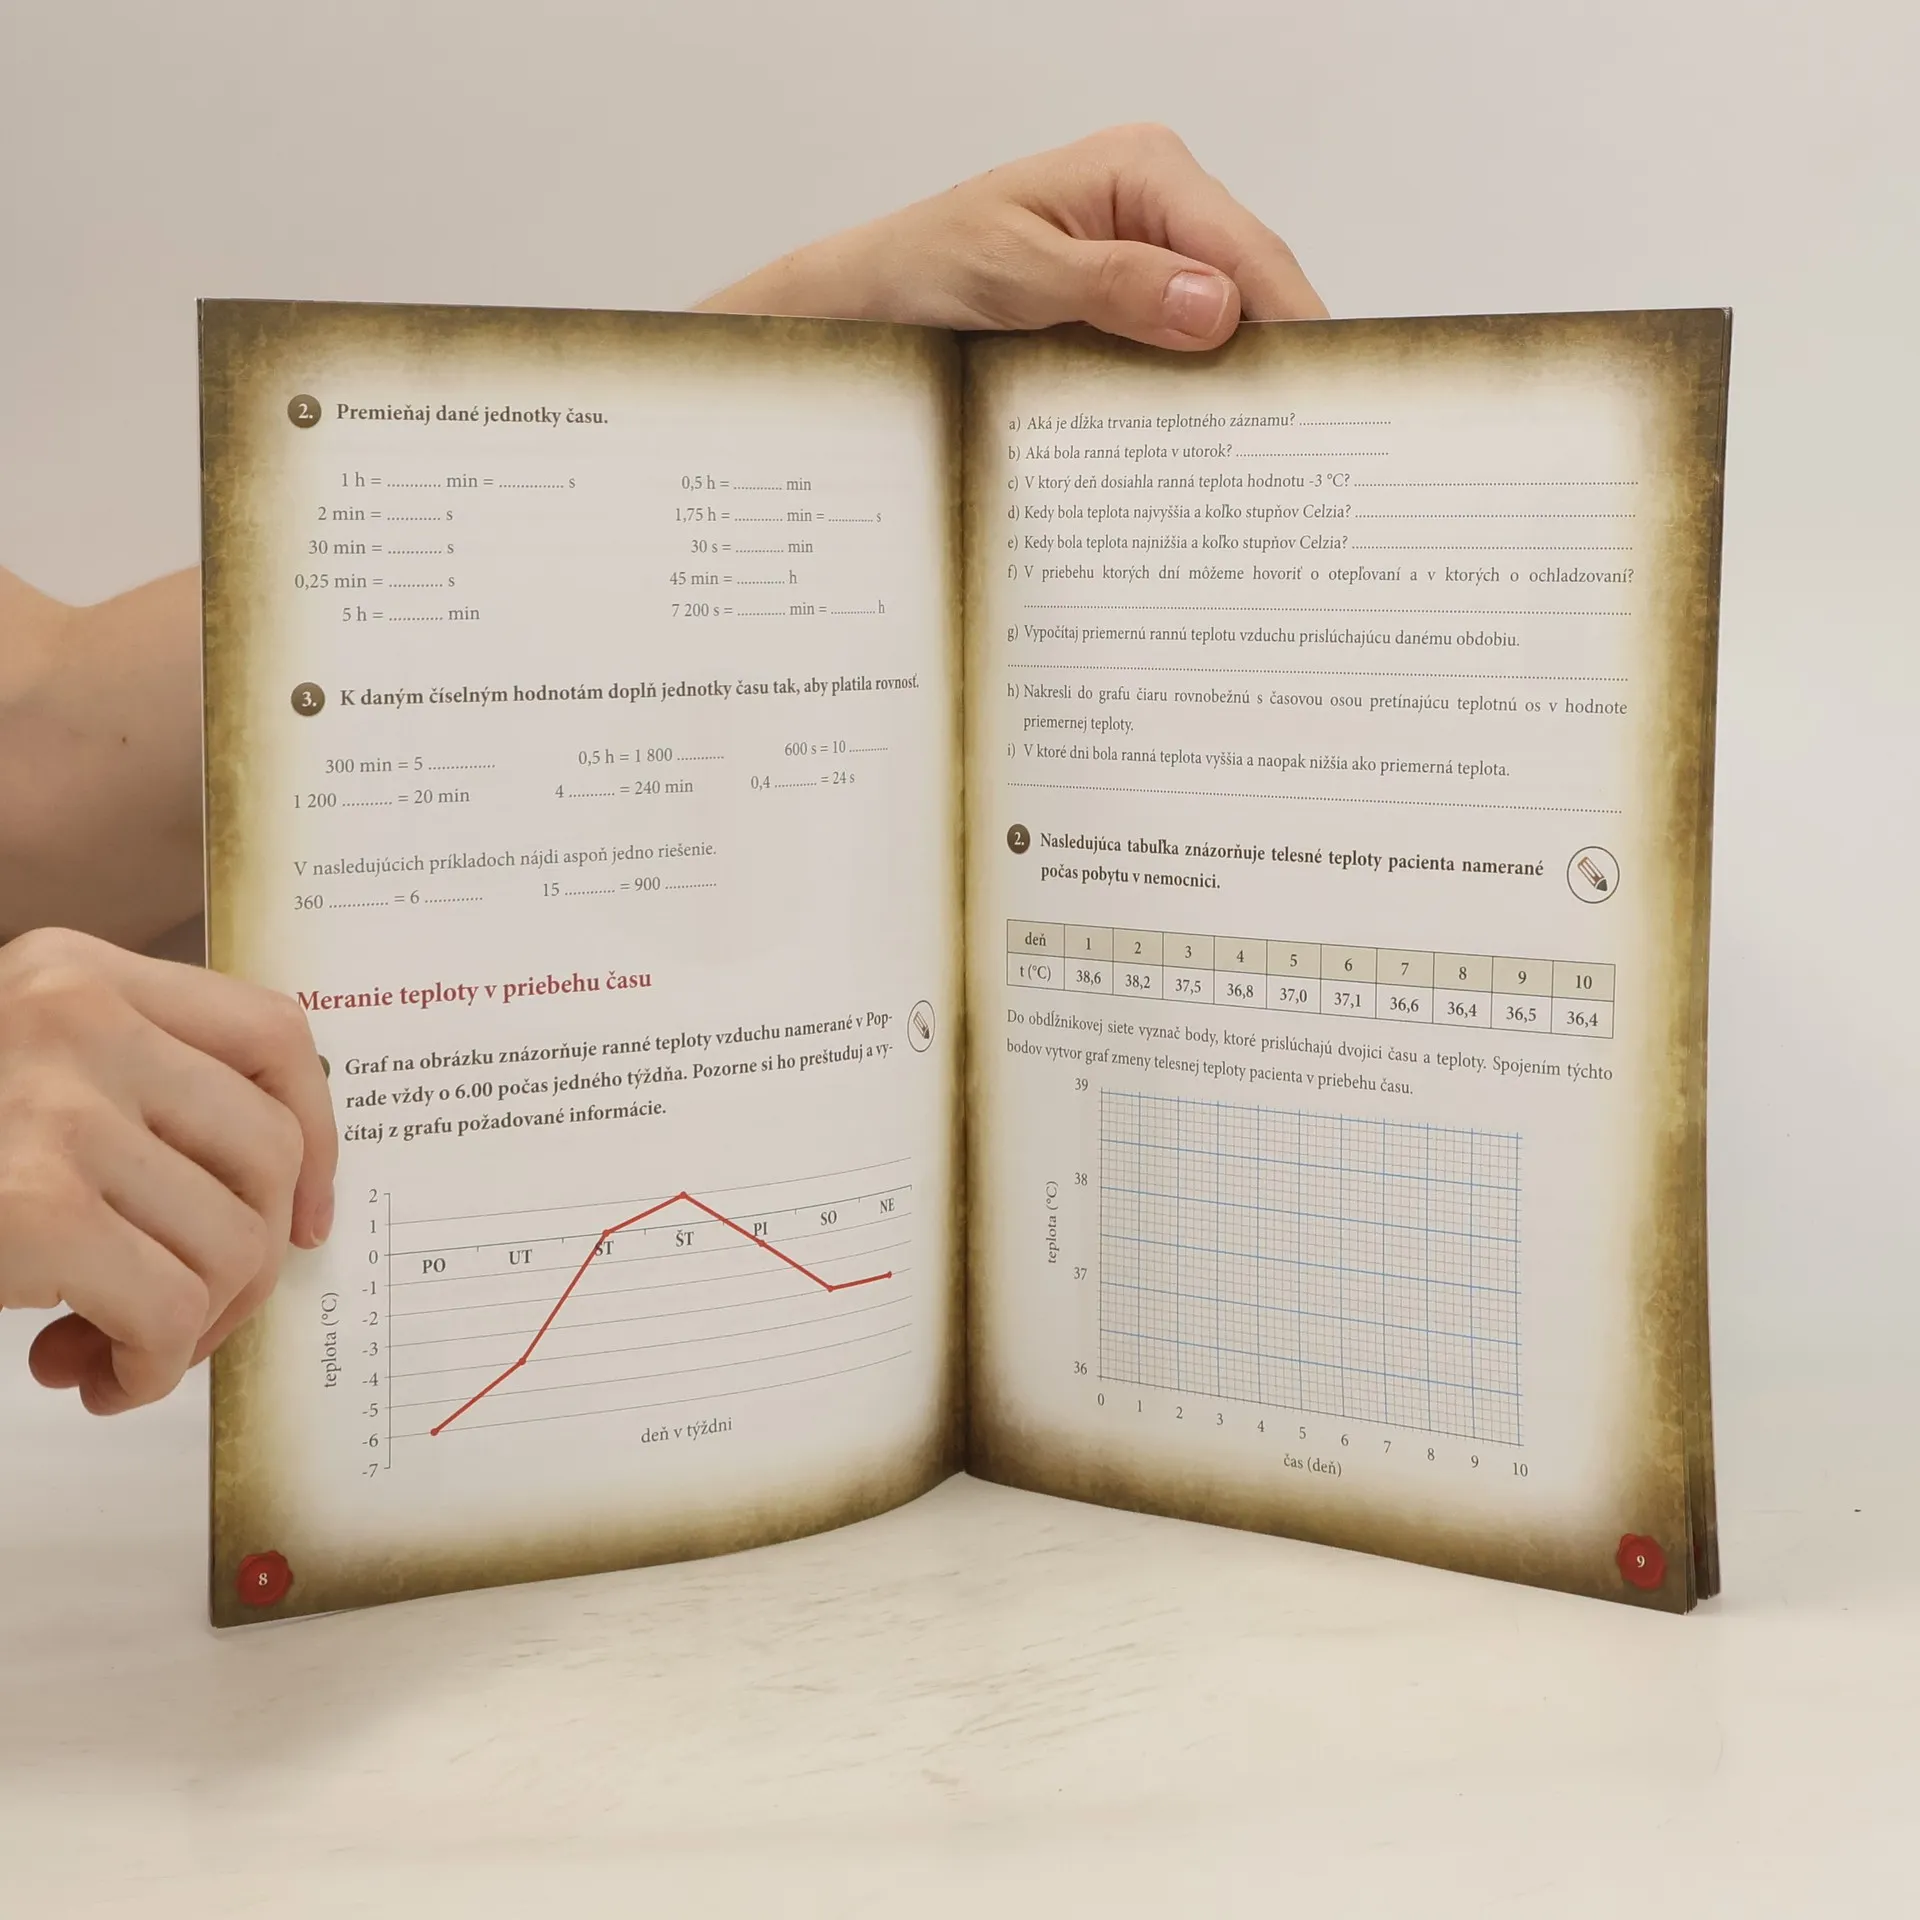 2. Premieňaj dané jednotky času.
1 h = ............ min = .............. s
2 min = ............ s
30 min = ............ s
0,25 min = ............ s
5 h = ............ min
0,5 h = ............ min
1,75 h = ............ min = ............ s
30 s = ............ min
45 min = ............ h
7 200 s = ............ min = ............ h
3. K daným číselným hodnotám doplň jednotky času tak, aby platila rovnosť.
300 min = 5 ............... 0,5 h = 1 800 ............ 600 s = 10 ............
1 200 ........... = 20 min 4 ........... = 240 min 0,4 ............ = 24 s
V nasledujúcich príkladoch nájdi aspoň jedno riešenie.
360 ............. = 6 ............. 15 ............ = 900 .............
Meranie teploty v priebehu času
Graf na obrázku znázorňuje ranné teploty vzduchu namerané v Pop-
rade vždy o 6.00 počas jedného týždňa. Pozorne si ho preštuduj a vy-
čítaj z grafu požadované informácie.
2
1
0
-1
-2
-3
-4
-5
-6
-7
teplota (°C)
PO UT ST ŠT PI SO NE
deň v týždni
8
a) Aká je dĺžka trvania teplotného záznamu? ........................
b) Aká bola ranná teplota v utorok? ........................................
c) V ktorý deň dosiahla ranná teplota hodnotu -3 °C? ........................................
d) Kedy bola teplota najvyššia a koľko stupňov Celzia? ........................................
e) Kedy bola teplota najnižšia a koľko stupňov Celzia? ........................................
f) V priebehu ktorých dní môžeme hovoriť o otepľovaní a v ktorých o ochladzovaní?
................................................................................
g) Vypočítaj priemernú rannú teplotu vzduchu prislúchajúcu danému obdobiu.
................................................................................
h) Nakresli do grafu čiaru rovnobežnú s časovou osou pretínajúcu teplotnú os v hodnote
priemernej teploty.
i) V ktoré dni bola ranná teplota vyššia a naopak nižšia ako priemerná teplota.
................................................................................
2. Nasledujúca tabuľka znázorňuje telesné teploty pacienta namerané
počas pobytu v nemocnici.
deň 1 2 3 4 5 6 7 8 9 10
t (°C) 38,6 38,2 37,5 36,8 37,0 37,1 36,6 36,4 36,5 36,4
Do obdĺžnikovej siete vyznač body, ktoré prislúchajú dvojici času a teploty. Spojením týchto
bodov vytvor graf zmeny telesnej teploty pacienta v priebehu času.
39
38
37
36
teplota (°C)
0 1 2 3 4 5 6 7 8 9 10
čas (deň)
9